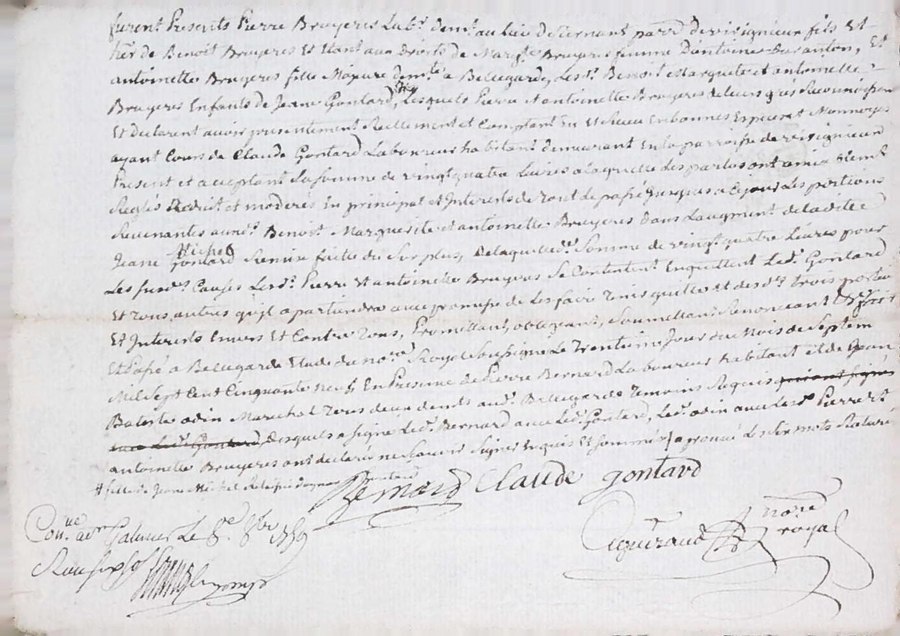 furent Presents Pierre Bruyeres Labr. demt. au lieu de parr. de revisignieux fils Et
her. de Benoit Bruyeres Et Etant aux Droits de Margte. Bruyeres femme Dantoine Durantou, Et
antoinette Bruyeres fille Majeure demte. a Bellegarde, Lesd. Benoit Marguerite et antoinette
Bruyeres Enfants de Jeane Gontard, Lesquels Pierre et antoinette Bruyeres de leurs grés
Et declarent avoir presentement Reellement et Comptant Eu et Receu En bonnes Especes et Monnoyes
ayant Cours de Claude Gontard Laboureur habitant demeurant En la parroisse de revisignieux
Present et acceptant La somme de vingt quatre Livres a Laquelle les parties ont amiablemt.
Regles Reduit et moderés En principal et Interests de tout le passé jusques a Ce jour Les portions
Revenantes auxd. Benoit Marguerite et antoinette Bruyeres Dans Laugment de ladite
Jeane Michel Gontard Remise faitte du Surplus, de laquelle de. Somme de vingt quatre Livres pour
Les susd. Causes Lesd. Pierre Et antoinette Bruyeres Se Contentent Enquittent Led. Gontard
Et tous autres qu'il apartiendra avec promesse de Les faire tenir quittes desd. trois portions
Et Interests Envers Et Contre tous, Promettant, obligeant, Soumettant, Renonceant
Et Passé a Bellegarde Etude du nore. Royal Soussigné Le trentieme Jour du Mois de Septem
Mil Sept Cent Cinquante neuf En Presence de Pierre Bernard Laboureur habitant et de Jean
Batiste odin Marechal tous deux demts. aud. Bellegarde temoins Requis
Lesquels a Signé Led. Bernard avec Led. Gontard, Led. odin avec Lesd. Pierre Et
antoinette Bruyeres ont declaré ne Scavoir Signer Enquis Et Sommés
# fille de Jeane Michel
Bernard Claude gontard
Conlle. a Le 8e. 8bre 1759
nore. royal